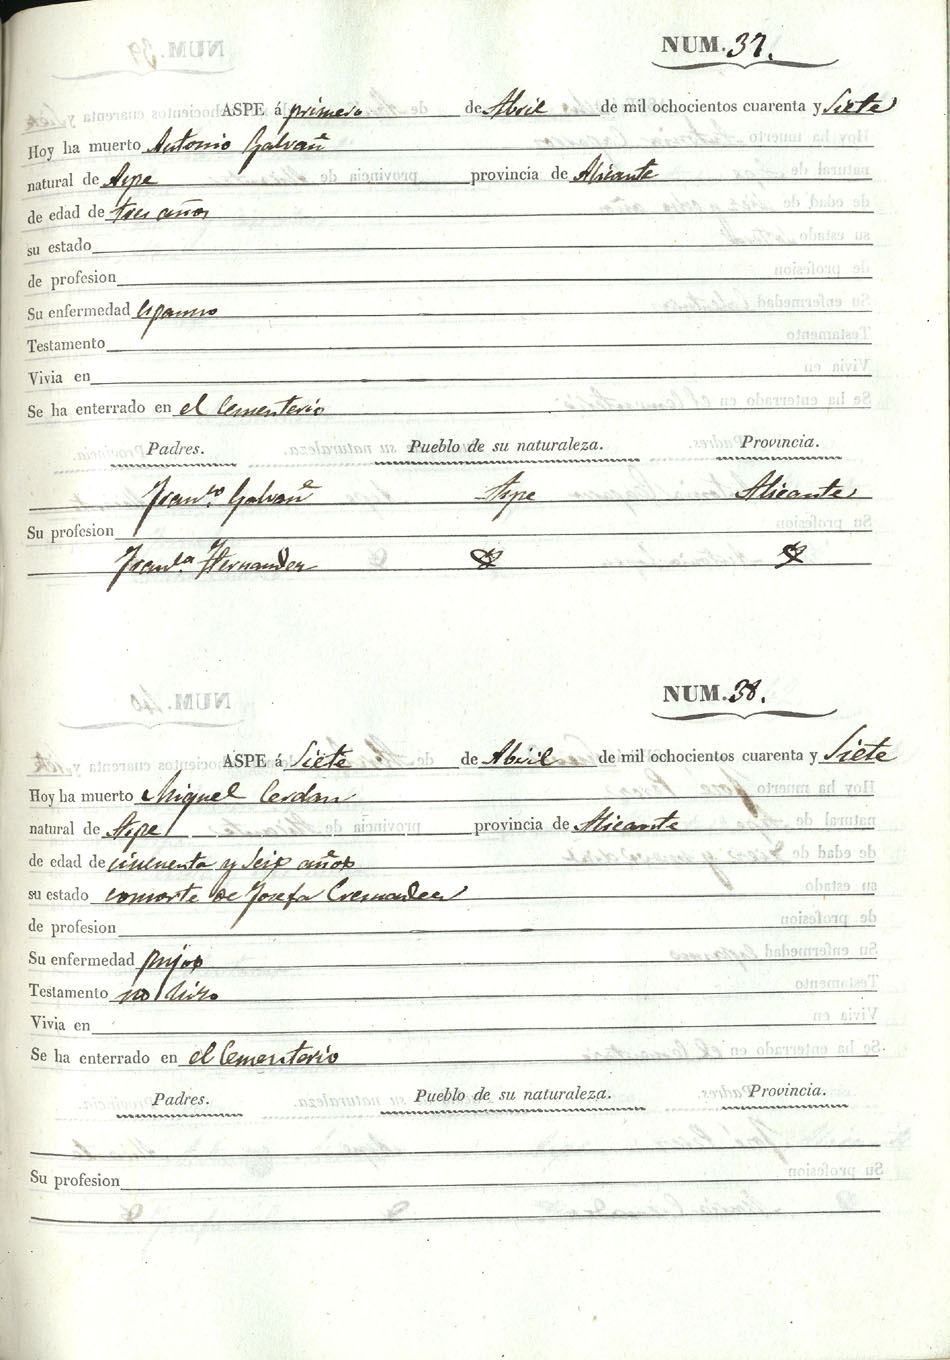 NUM. 37.
ASPE á primero de Abril de mil ochocientos cuarenta y Siete
Hoy ha muerto Antonio Galvañ
natural de Aspe provincia de Alicante
de edad de tres años
su estado
de profesion
Su enfermedad espasmo
Testamento
Vivia en
Se ha enterrado en el Cementerio
Padres. Pueblo de su naturaleza. Provincia.
Fran.co Galvañ Aspe Alicante
Su profesion
Fran.ca Hernandez
NUM. 38.
ASPE á Siete de Abril de mil ochocientos cuarenta y Siete
Hoy ha muerto Miguel Cerdan
natural de Aspe provincia de Alicante
de edad de cincuenta y Seis años
su estado consorte de Josefa Cremades
de profesion
Su enfermedad pujos
Testamento no hizo
Vivia en
Se ha enterrado en el Cementerio
Padres. Pueblo de su naturaleza. Provincia.
Su profesion